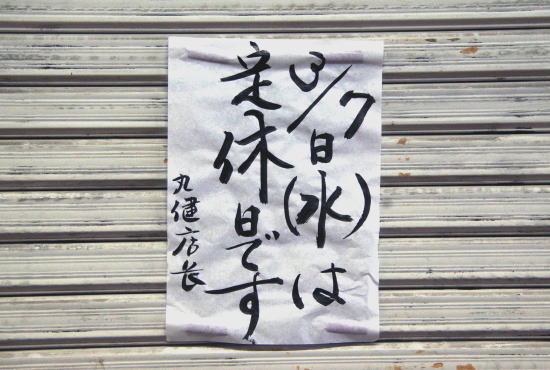 3/7日(水)は
定休日です
丸健店長